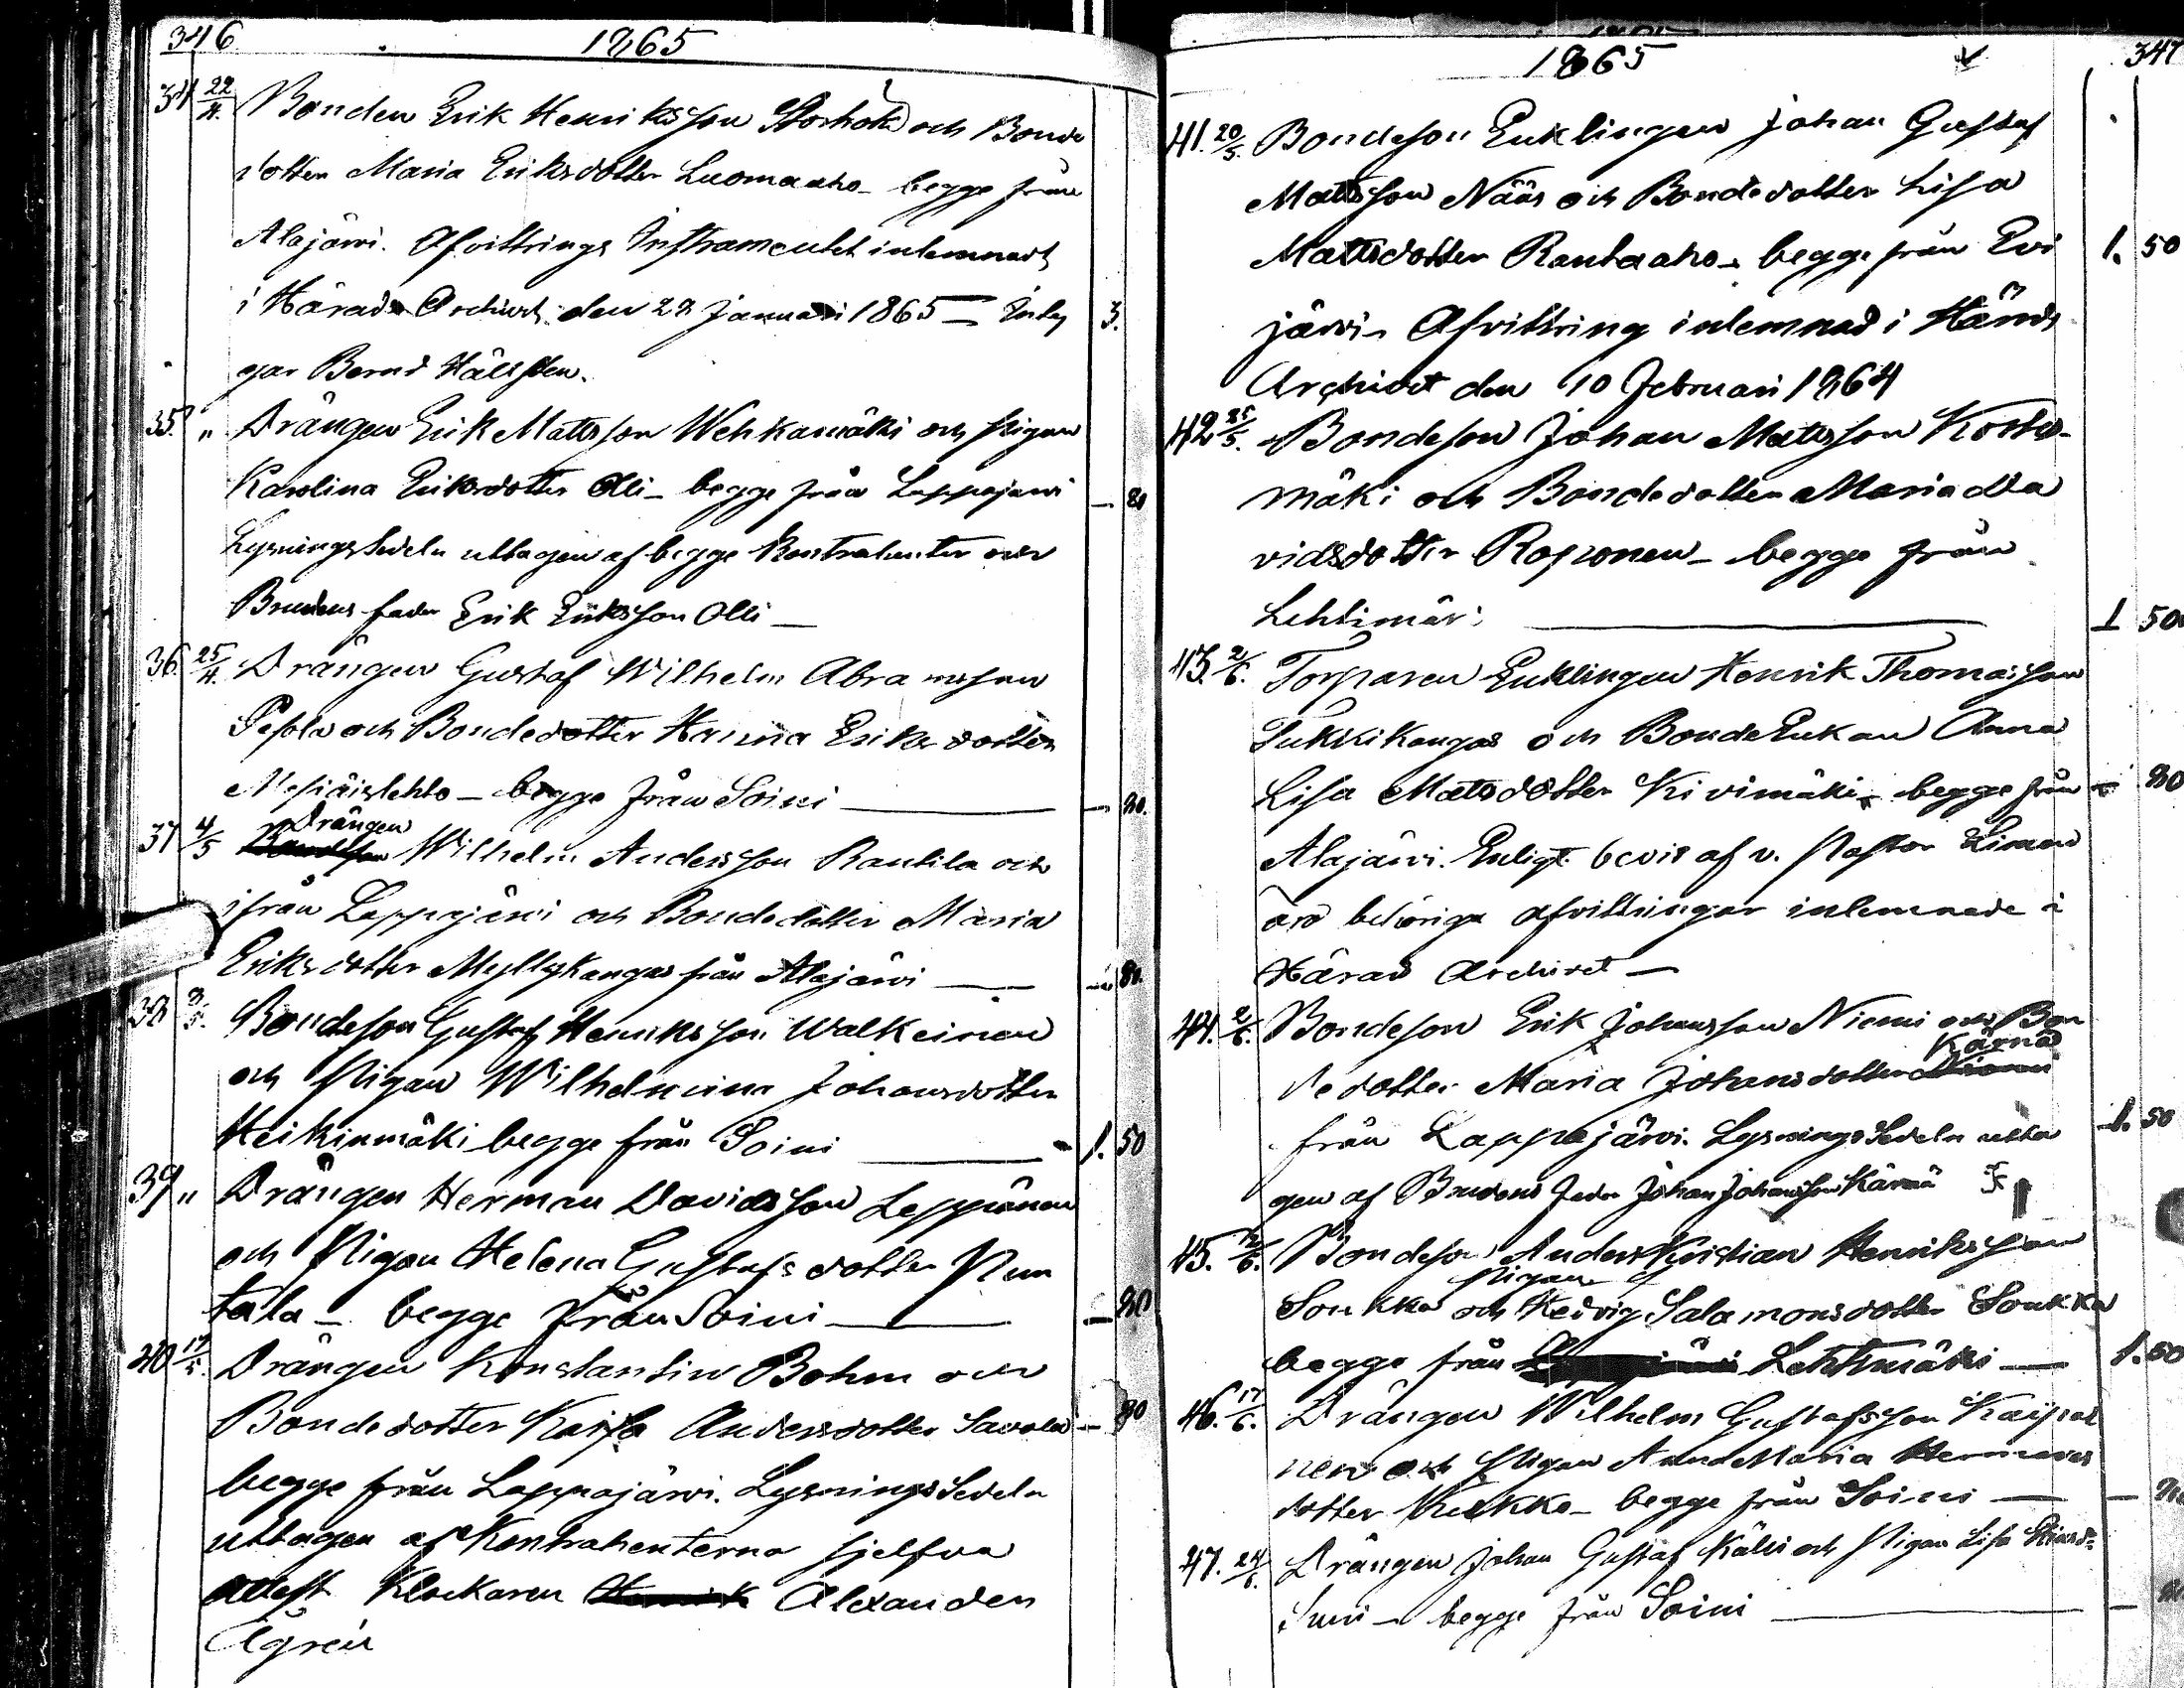 346
1865
34 22/4. Bonden Erik Henriksson Storhok och Bonde
dotter Maria Eriksdotter Luomaaho - begge från
Alajärvi. Afvittrings Instrumentet inlemnadt
i Härads Archivet den 28 Januari 1865 — 3.
gar Bernd Hällsten.
35. " Drängen Erik Mattsson Wehkamäki och Pigan
Karolina Eriksdotter Olli - begge från Lappajärvi — 80
Lysningssedeln uttagen af begge Kontrahenter och
Brudens fader Erik Eriksson Olli —
36. 25/4. Drängen Gustaf Wilhelm Abramsson
Pesola och Bondedotter Hanna Eriksdotter
Mesiäislehto - begge från Soini — 80.
37 4/5 Drängen Wilhelm Andersson Rantila och
ifrån Lappajärvi och Bondedotter Maria
Eriksdotter Myllykangas från Alajärvi — 80.
38 8/5. Bondeson Gustaf Henriksson Walkeinen
och Pigan Wilhelmina Johansdotter
Heikinmäki begge från Soini — 1. 50
39 " Drängen Herman Davidsson Leppänen
och Pigan Helena Gustafsdotter Pun
tala - begge från Soini — 80
40 17/5. Drängen Konstantin Bohm och
Bondedotter Kajsa Andersdotter Savola — 80
begge från Lappajärvi. Lysningssedeln
uttagen af Kontrahenterna sjelfva
attest Klockaren Alexander
Ågren
1865
347
41. 20/5. Bondeson Enklingen Johan Gustaf
Mattsson Näås och Bondedotter Lisa
Mattsdotter Rantaaho - begge från Evi 1. 50
järvi. Afvittring inlemnad i Härads
Archivet den 10 Februari 1864
42 25/5. Bondeson Johan Mattsson Koske-
mäki och Bondedotter Maria Da
vidsdotter Roponen - begge från
Lehtimäki — 1 50
43. 2/6. Torparen Enklingen Henrik Thomasson
Tukkikangas och Bonde Enkan Anna
Lisa Mattsdotter Kivimäki - begge från — 80
Alajärvi. Enligt bevis af v. Pastor Liman
äro behöriga afvittringar inlemnade i
Härads Archivet —
44. 2/6. Bondeson Erik Johansson Niemi och Bon
Kärnä
dedotter Maria Johansdotter Niemi
från Lappajärvi. Lysningssedeln utta 1. 50
gen af Brudens Fader Johan Johansson Kärnä
45. /6. Bondeson Anders Kristian Henriksson
Pigan
Soukka och Hedvig Salamonsdotter Soukka
begge från Lehtimäki — 1. 50
46. 17/6. Drängen Wilhelm Gustafsson Kaipai
nen och Pigan Anna Maria Hermans
dotter Kukko - begge från Soini —
47. 24/6. Drängen Johan Gustaf Käki och Pigan Lisa
Suni - begge från Soini —